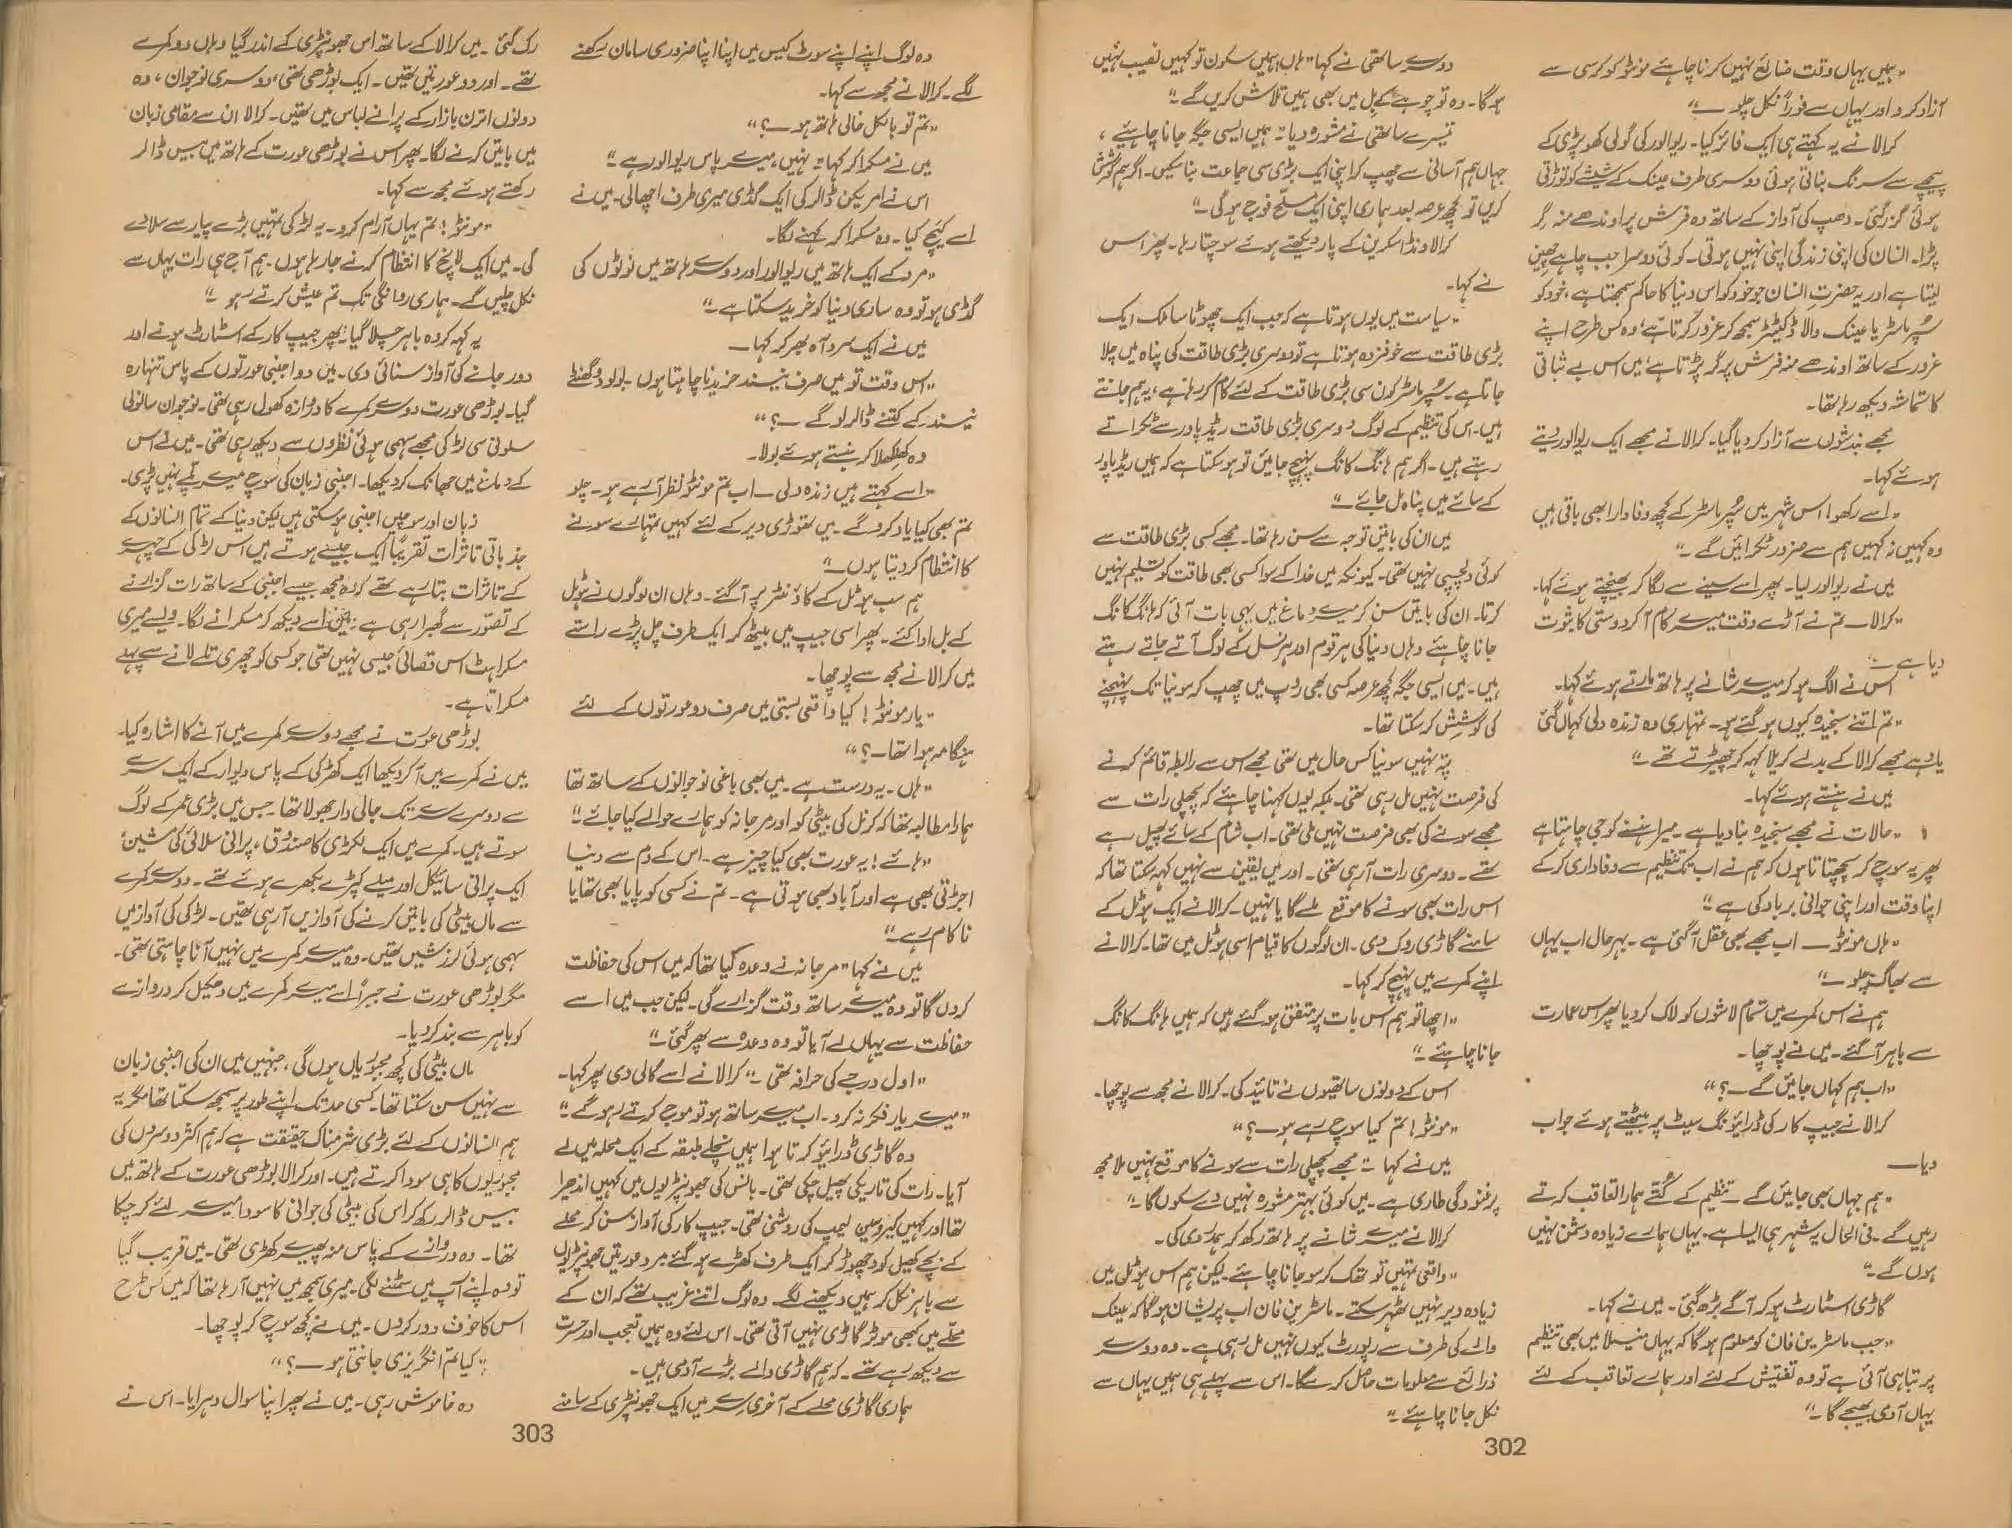 ”ہمیں یہاں وقت ضائع نہیں کرنا چاہئے مونٹو کو کرسی سے
آزاد کر دو اور یہاں سے فوراً نکل چلو۔“
کرالا نے یہ کہتے ہی ایک فائر کیا۔ ریوالور کی گولی کھوپڑی کے
پیچھے سے سرنگ بناتی ہوئی دوسری طرف عینک کے شیشے کو توڑتی
ہوئی گزر گئی۔ دھپ کی آواز کے ساتھ وہ فرش پر اوندھے منہ گر
پڑا۔ انسان کی اپنی زندگی اپنی نہیں ہوتی۔ کوئی دوسرا جب چاہے چھین
لیتا ہے اور یہ حضرتِ انسان جو خود کو اس دنیا کا حاکم سمجھتا ہے، خود کو
سُپر ماسٹر یا عینک والا ڈکٹیٹر سمجھ کر غرور کرتا ہے، وہ کس طرح اپنے
غرور کے ساتھ اوندھے منہ فرش پر گر پڑتا ہے، میں اس بے ثباتی
کا تماشہ دیکھ رہا تھا۔
مجھے بندشوں سے آزاد کر دیا گیا۔ کرالا نے مجھے ایک ریوالور دیتے
ہوئے کہا۔
”اسے رکھو! اس شہر میں سُپر ماسٹر کے کچھ وفادار ابھی باقی ہیں
وہ کہیں نہ کہیں ہم سے ضرور ٹکرائیں گے۔“
میں نے ریوالور لیا۔ پھر اسے سینے سے لگا کر بھینچتے ہوئے کہا۔
”کرالا — تم نے آڑے وقت میرے کام آ کر دوستی کا ثبوت
دیا ہے۔“
اس نے الگ ہو کر میرے شانے پر ہاتھ مارتے ہوئے کہا۔
”تم اتنے سنجیدہ کیوں ہو گئے ہو۔ تمہاری وہ زندہ دلی کہاں گئی
یاد ہے مجھے کرالا کے بدلے کریلا کہہ کر چھیڑتے تھے۔“
میں نے ہنستے ہوئے کہا۔
”حالات نے مجھے سنجیدہ بنا دیا ہے۔ میرا ہنسنے کو جی چاہتا ہے
پھر یہ سوچ کر پچھتاتا ہوں کہ ہم نے اب تک تنظیم سے وفاداری کر کے
اپنا وقت اور اپنی جوانی برباد کی ہے۔“
”ہاں مونٹو — اب مجھے بھی عقل آ گئی ہے۔ بہرحال اب یہاں
سے بھاگ چلو۔“
ہم نے اس کمرے میں تمام لاشوں کو لاک کر دیا پھر اس عمارت
سے باہر آ گئے۔ میں نے پوچھا۔
”اب ہم کہاں جائیں گے۔؟“
کرالا نے جیپ کار کی ڈرائیونگ سیٹ پر بیٹھتے ہوئے جواب
دیا —
”ہم جہاں بھی جائیں گے۔ تنظیم کے کُتّے ہمارا تعاقب کرتے
رہیں گے۔ فی الحال یہ شہر ہی ایسا ہے۔ یہاں ہمارے زیادہ دشمن نہیں
ہوں گے۔“
گاڑی اسٹارٹ ہو کر آگے بڑھ گئی۔ میں نے کہا۔
”جب ماسٹر ین فان کو معلوم ہوگا کہ یہاں منیلا میں بھی تنظیم
پر تباہی آئی ہے تو وہ تفتیش کے لئے اور ہمارے تعاقب کے لئے
یہاں آدمی بھیجے گا۔“
دوسرے ساتھی نے کہا ”ہاں! ہمیں سکون تو کہیں نصیب نہیں
ہوگا۔ وہ تو چوہے کے بِل میں بھی ہمیں تلاش کریں گے۔“
تیسرے ساتھی نے مشورہ دیا ”ہمیں ایسی جگہ جانا چاہئے،
جہاں ہم آسانی سے چھپ کر اپنی ایک بڑی سی جماعت بنا سکیں۔ اگر ہم کوشش
کریں تو کچھ عرصہ بعد ہماری اپنی ایک مسلح فوج ہوگی۔“
کرالا ونڈ اسکرین کے پار دیکھتے ہوئے سوچتا رہا۔ پھر اس
نے کہا۔
”سیاست میں یوں ہوتا ہے کہ جب ایک چھوٹا سا ملک ایک
بڑی طاقت سے خوفزدہ ہوتا ہے تو دوسری بڑی طاقت کی پناہ میں چلا
جاتا ہے۔ سُپر ماسٹر کون سی بڑی طاقت کے لئے کام کر رہا ہے، یہ ہم جانتے
ہیں۔ اس کی تنظیم کے لوگ دوسری بڑی طاقت ریڈ پاور سے ٹکراتے
رہتے ہیں۔ اگر ہم ہانگ کانگ پہنچ جائیں تو ہو سکتا ہے کہ ہمیں ریڈ پاور
کے سائے میں پناہ مل جائے۔“
میں ان کی باتیں توجہ سے سن رہا تھا۔ مجھے کسی بڑی طاقت سے
کوئی دلچسپی نہیں تھی۔ کیونکہ میں خدا کے سوا کسی بھی طاقت کو تسلیم نہیں
کرتا۔ ان کی باتیں سن کر میرے دماغ میں یہی بات آئی کہ ہانگ کانگ
جانا چاہئے وہاں دنیا کی ہر قوم اور ہر نسل کے لوگ آتے جاتے رہتے
ہیں۔ میں ایسی جگہ کچھ عرصہ کسی بھی روپ میں چھپ کر سونیا تک پہنچنے
کی کوشش کر سکتا تھا۔
پتہ نہیں سونیا کس حال میں تھی مجھے اس سے رابطہ قائم کرنے
کی فرصت نہیں مل رہی تھی۔ بلکہ یوں کہنا چاہئے کہ پچھلی رات سے
مجھے سونے کی بھی فرصت نہیں ملی تھی۔ اب شام کے سائے پھیل رہے
تھے۔ دوسری رات آ رہی تھی۔ اور میں یقین سے نہیں کہہ سکتا تھا کہ
اس رات بھی سونے کا موقع ملے گا یا نہیں۔ کرالا نے ایک ہوٹل کے
سامنے گاڑی روک دی۔ ان لوگوں کا قیام اسی ہوٹل میں تھا۔ کرالا نے
اپنے کمرے میں پہنچ کر کہا۔
”اچھا تو ہم اس بات پر متفق ہو گئے ہیں کہ ہمیں ہانگ کانگ
جانا چاہئے۔“
اس کے دونوں ساتھیوں نے تائید کی۔ کرالا نے مجھ سے پوچھا۔
”مونٹو! تم کیا سوچ رہے ہو۔؟“
میں نے کہا ”مجھے پچھلی رات سے سونے کا موقع نہیں ملا مجھ
پر غنودگی طاری ہے۔ میں کوئی بہتر مشورہ نہیں دے سکوں گا۔“
کرالا نے میرے شانے پر ہاتھ رکھ کر ہمدردی کی۔
”واقعی تمہیں تو تھک کر سو جانا چاہئے لیکن ہم اس ہوٹل میں
زیادہ دیر نہیں ٹھہر سکتے۔ ماسٹر ین فان اب پریشان ہوگا کہ عینک
والے کی طرف سے رپورٹ کیوں نہیں مل رہی ہے۔ وہ دوسرے
ذرائع سے معلومات حاصل کرے گا۔ اس سے پہلے ہی ہمیں یہاں سے
نکل جانا چاہئے۔“
302
وہ لوگ اپنے اپنے سوٹ کیس میں اپنا اپنا ضروری سامان رکھنے
لگے۔ کرالا نے مجھ سے کہا۔
”تم تو بالکل خالی ہاتھ ہو۔؟“
میں نے مسکرا کر کہا ”نہیں، میرے پاس ریوالور ہے۔“
اس نے امریکن ڈالر کی ایک گڈی میری طرف اچھالی۔ میں نے
اسے کیچ کیا۔ وہ مسکرا کر کہنے لگا۔
”مرد کے ایک ہاتھ میں ریوالور اور دوسرے ہاتھ میں نوٹوں کی
گڈی ہو تو وہ ساری دنیا کو خرید سکتا ہے۔“
میں نے ایک سرد آہ بھر کر کہا —
”اس وقت تو میں صرف نیند خریدنا چاہتا ہوں۔ بولو دو گھنٹے
نیند کے کتنے ڈالر لو گے۔؟“
وہ کھلکھلا کر ہنستے ہوئے بولا۔
”اسے کہتے ہیں زندہ دلی — اب تم مونٹو نظر آ رہے ہو۔ چلو
تم بھی کیا یاد کرو گے۔ میں تھوڑی دیر کے لئے کہیں تمہارے سونے
کا انتظام کر دیتا ہوں۔“
ہم سب ہوٹل کے کاؤنٹر پر آ گئے۔ وہاں ان لوگوں نے ہوٹل
کے بل ادا کئے۔ پھر اسی جیپ میں بیٹھ کر ایک طرف چل پڑے راستے
میں کرالا نے مجھ سے پوچھا۔
”یار مونٹو! کیا واقعی بستی میں صرف دو عورتوں کے لئے
ہنگامہ ہوا تھا۔؟“
”ہاں۔ یہ درست ہے۔ میں بھی باغی نوجوانوں کے ساتھ تھا
ہمارا مطالبہ تھا کہ کرنل کی بیٹی کو اور مرجانہ کو ہمارے حوالے کیا جائے۔“
”ہائے! یہ عورت بھی کیا چیز ہے۔ اس کے دم سے دنیا
اجڑتی بھی ہے اور آباد بھی ہوتی ہے۔ تم نے کسی کو پایا بھی تھا یا
ناکام رہے۔“
میں نے کہا ”مرجانہ نے وعدہ کیا تھا کہ میں اس کی حفاظت
کروں گا تو وہ میرے ساتھ وقت گزارے گی۔ لیکن جب میں اسے
حفاظت سے یہاں لے آیا تو وہ وعدہ سے پھر گئی۔“
”اول درجے کی حرافہ تھی۔“ کرالا نے اسے گالی دی پھر کہا۔
”میرے یار فکر نہ کرو۔ اب میرے ساتھ ہو تو موج کرتے رہو گے۔“
وہ گاڑی ڈرائیو کرتا ہوا ہمیں نچلے طبقہ کے ایک محلہ میں لے
آیا۔ رات کی تاریکی پھیل چکی تھی۔ بانس کی جھونپڑیوں میں کہیں اندھیرا
تھا اور کہیں کیروسین لیمپ کی روشنی تھی۔ جیپ کار کی آواز سن کر محلے
کے بچے کھیل کود چھوڑ کر ایک طرف کھڑے ہو گئے مرد عورتیں جھونپڑیوں
سے باہر نکل کر ہمیں دیکھنے لگے۔ وہ لوگ اتنے غریب تھے کہ ان کے
محلے میں کبھی موٹر گاڑی نہیں آتی تھی۔ اس لئے وہ ہمیں تعجب اور حسرت
سے دیکھ رہے تھے۔ کہ ہم گاڑی والے بڑے آدمی ہیں۔
ہماری گاڑی محلے کے آخری سرے میں ایک جھونپڑی کے سامنے
رک گئی۔ میں کرالا کے ساتھ اس جھونپڑی کے اندر گیا وہاں دو کمرے
تھے۔ اور دو عورتیں تھیں۔ ایک بوڑھی تھی، دوسری نوجوان، وہ
دونوں اترن بازار کے پرانے لباس میں تھیں۔ کرالا ان سے مقامی زبان
میں باتیں کرنے لگا۔ پھر اس نے بوڑھی عورت کے ہاتھ میں بیس ڈالر
رکھتے ہوئے مجھ سے کہا۔
”مونٹو! تم یہاں آرام کرو۔ یہ لڑکی تمہیں بڑے پیار سے سلائے
گی۔ میں ایک لانچ کا انتظام کرنے جا رہا ہوں۔ ہم آج ہی رات یہاں سے
نکل چلیں گے۔ ہماری روانگی تک تم عیش کرتے رہو۔“
یہ کہہ کر وہ باہر چلا گیا۔ پھر جیپ کار کے اسٹارٹ ہونے اور
دور جانے کی آواز سنائی دی۔ میں دو اجنبی عورتوں کے پاس تنہا رہ
گیا۔ بوڑھی عورت دوسرے کمرے کا دروازہ کھول رہی تھی۔ نوجوان سانولی
سلونی سی لڑکی مجھے سہمی ہوئی نظروں سے دیکھ رہی تھی۔ میں نے اس
کے دماغ میں جھانک کر دیکھا۔ اجنبی زبان کی سوچ میرے پلے نہیں پڑی۔
زبان اور سوچیں اجنبی ہو سکتی ہیں لیکن دنیا کے تمام انسانوں کے
جذباتی تاثرات تقریباً ایک جیسے ہوتے ہیں اس لڑکی کے چہرے
کے تاثرات بتا رہے تھے کہ وہ مجھ جیسے اجنبی کے ساتھ رات گزارنے
کے تصور سے گھبرا رہی ہے۔ میں اسے دیکھ کر مسکرانے لگا۔ ویسے میری
مسکراہٹ اس قصائی جیسی نہیں تھی جو کسی کو چھری تلے لانے سے پہلے
مسکراتا ہے۔
بوڑھی عورت نے مجھے دوسرے کمرے میں آنے کا اشارہ کیا۔
میں نے کمرے میں آ کر دیکھا ایک کھڑکی کے پاس دیوار کے ایک سرے
سے دوسرے سرے تک جالی دار جھولا تھا۔ جس میں بڑی عمر کے لوگ
سوتے ہیں۔ کمرے میں ایک لکڑی کا صندوق، پرانی سلائی کی مشین،
ایک پرانی سائیکل اور میلے کپڑے بکھرے ہوئے تھے۔ دوسرے کمرے
سے ماں بیٹی کی باتیں کرنے کی آوازیں آ رہی تھیں۔ لڑکی کی آواز میں
سہمی ہوئی لرزشیں تھیں۔ وہ میرے کمرے میں نہیں آنا چاہتی تھی۔
مگر بوڑھی عورت نے جبراً اسے میرے کمرے میں دھکیل کر دروازے
کو باہر سے بند کر دیا۔
ماں بیٹی کی کچھ مجبوریاں ہوں گی، جنہیں میں ان کی اجنبی زبان
سے نہیں سن سکتا تھا۔ کسی حد تک اپنے طور پر سمجھ سکتا تھا مگر یہ
ہم انسانوں کے لئے بڑی شرمناک حقیقت ہے کہ ہم اکثر دوسروں کی
مجبوریوں کا ہی سودا کرتے ہیں۔ اور کرالا بوڑھی عورت کے ہاتھ میں
بیس ڈالر رکھ کر اس کی بیٹی کی جوانی کا سودا میرے لئے کر چکا
تھا۔ وہ دروازے کے پاس منہ پھیرے کھڑی تھی۔ میں قریب گیا
تو وہ اپنے آپ میں سمٹنے لگی۔ میری سمجھ میں نہیں آ رہا تھا کہ میں کس طرح
اس کا خوف دور کروں۔ میں نے کچھ سوچ کر پوچھا۔
”کیا تم انگریزی جانتی ہو۔؟“
وہ خاموش رہی۔ میں نے پھر اپنا سوال دہرایا۔ اس نے
303